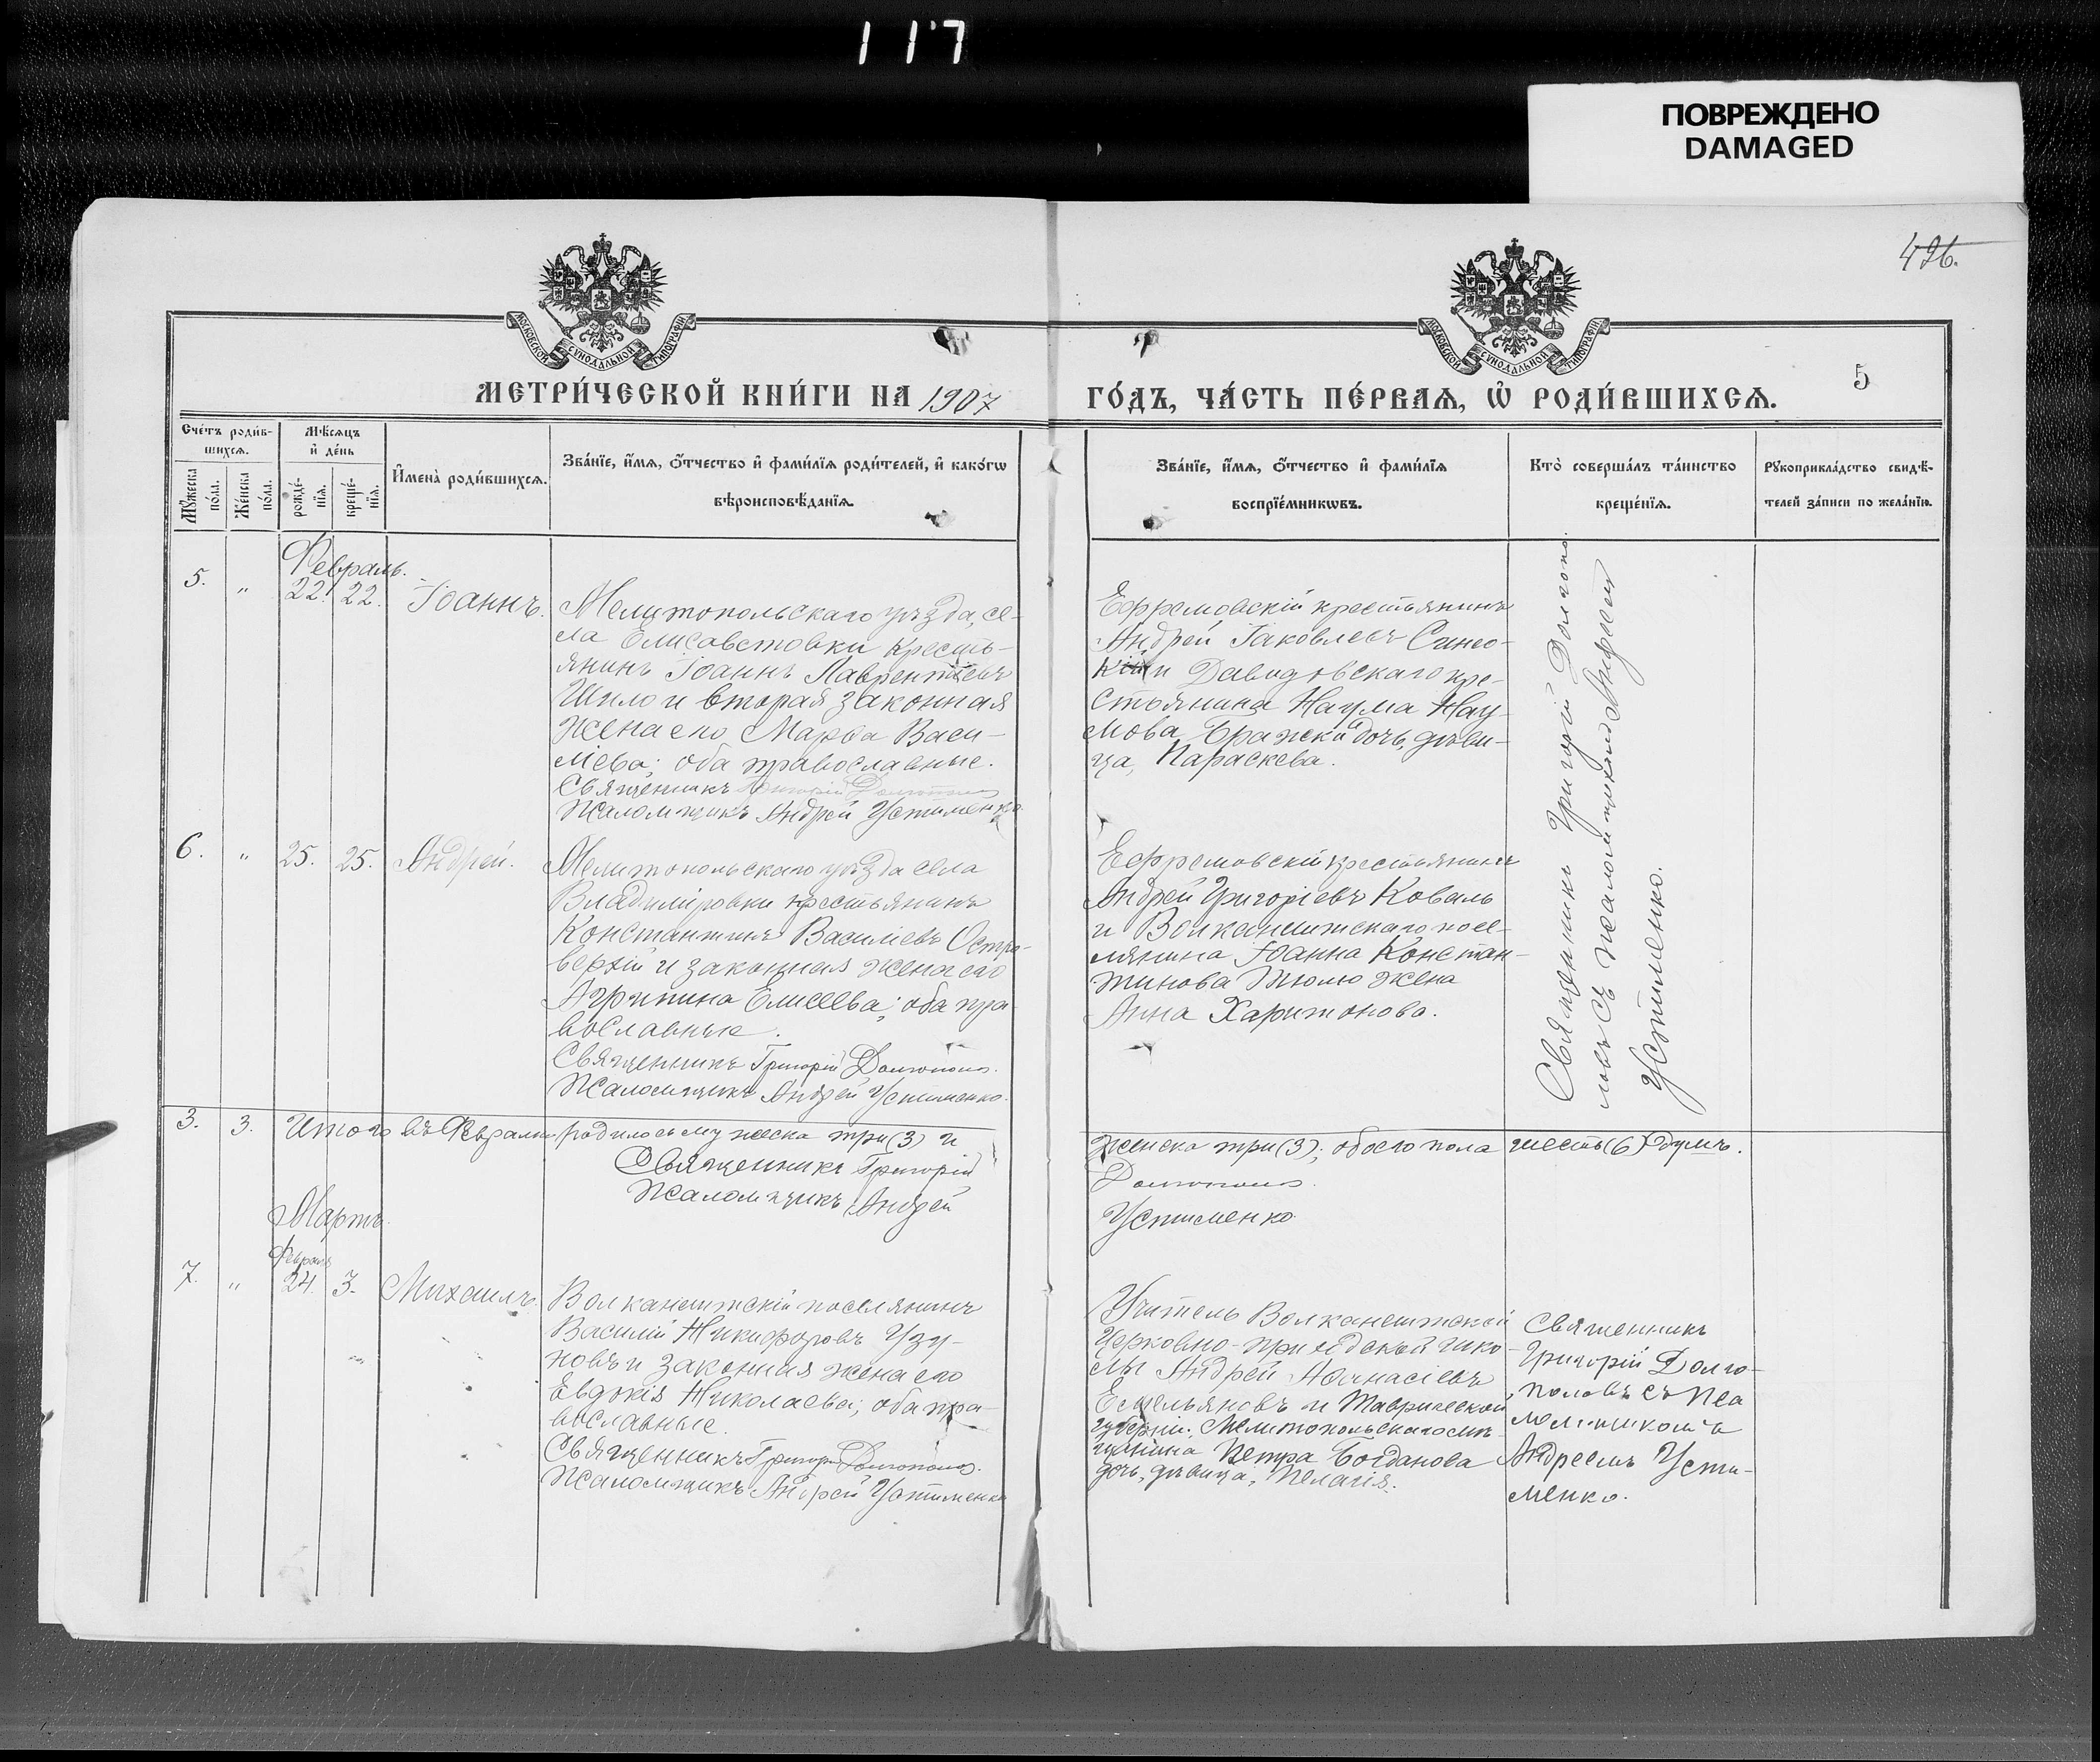 117
ПОВРЕЖДЕНО
DAMAGED
496.
МОСКОВСКОЙ СѴНОДАЛЬНОЙ ТИПОГРАФІИ
МОСКОВСКОЙ СѴНОДАЛЬНОЙ ТИПОГРАФІИ
МЕТРИ́ЧЕСКОЙ КНИ́ГИ НА 1907
ГО́ДЪ, ЧА́СТЬ ПЕ́РВАѦ, Ѡ҆ РОДИ́ВШИХСѦ.
5
Сче́тъ роди́в-
шихсѧ.
Мꙋ́жеска
по́ла.
Же́нска
по́ла.
Мѣ́сѧцъ
и҆ де́нь
рожде́-
нїѧ.
креще́-
нїѧ.
И҆мена̀ роди́вшихсѧ.
Зва́нїе, и҆́мѧ, ѻ҆́тчество и҆ фами́лїѧ роди́телей, и҆ како́гѡ
вѣроисповѣ́данїѧ.
Зва́нїе, и҆́мѧ, ѻ҆́тчество и҆ фами́лїѧ
воспрїе́мникѡвъ.
Кто̀ соверша́лъ та́инство
креще́нїѧ.
Рꙋкоприкла́дство свидѣ́-
телей за́писи по жела́нїю.
Февраль.
5. " 22. 22. Іоаннъ.
Мелитопольскаго уѣзда, се-
ла Елисаветовки кресть-
янинъ Іоаннъ Лаврентіевъ
Шило и вторая законная
жена его Марѳа Васи-
ліева; оба православные.
Священникъ Григорій Долгополовъ
Псаломщикъ Андрей Устименко.
Ефремовскій крестьянинъ
Андрей Іаковлевъ
и Давидовскаго кре-
стьянина Наума Нау-
мова дочь, дѣви-
ца, Параскева.
Священникъ Григорій Долгопо-
ловъ съ псаломщикомъ Андреемъ
Устименко.
6. " 25. 25. Андрей.
Мелитопольскаго уѣзда села
Владиміровки крестьянинъ
Константинъ Василіевъ Остро-
верхій и законная жена его
Агрипина Елисеева; оба пра-
вославные.
Священникъ Григорій Долгополовъ.
Псаломщикъ Андрей Устименко.
Ефремовскій крестьянинъ
Андрей Григоріевъ Коваль
и Волканештскаго посе-
лянина Іоанна Констан-
тинова Тюлю жена
Анна Харитонова.
3. 3. Итого въ Февралѣ родилось мужеска три (3) и
женска три (3); обоего пола шесть (6) душъ.
Священникъ Григорій
Долгополовъ.
Псаломщикъ Андрей
Устименко.
Мартъ.
Февраля
7. " 24. 3. Михаилъ.
Волканештскій поселянинъ
Василій Никифоровъ Узу-
новъ и законная жена его
Евдокія Николаева; оба пра-
вославные.
Священникъ Григорій Долгополовъ.
Псаломщикъ Андрей Устименко
Учитель Волканештской
Церковно-приходской шко-
лы Андрей Аѳанасіевъ
Емельяновъ и Таврической
губерніи, Мелитопольскаго мѣ-
щанина Петра Богданова
дочь, дѣвица, Пелагія.
Священникъ
Григорій Долго-
половъ съ пса-
ломщикомъ
Андреемъ Усти-
менко.